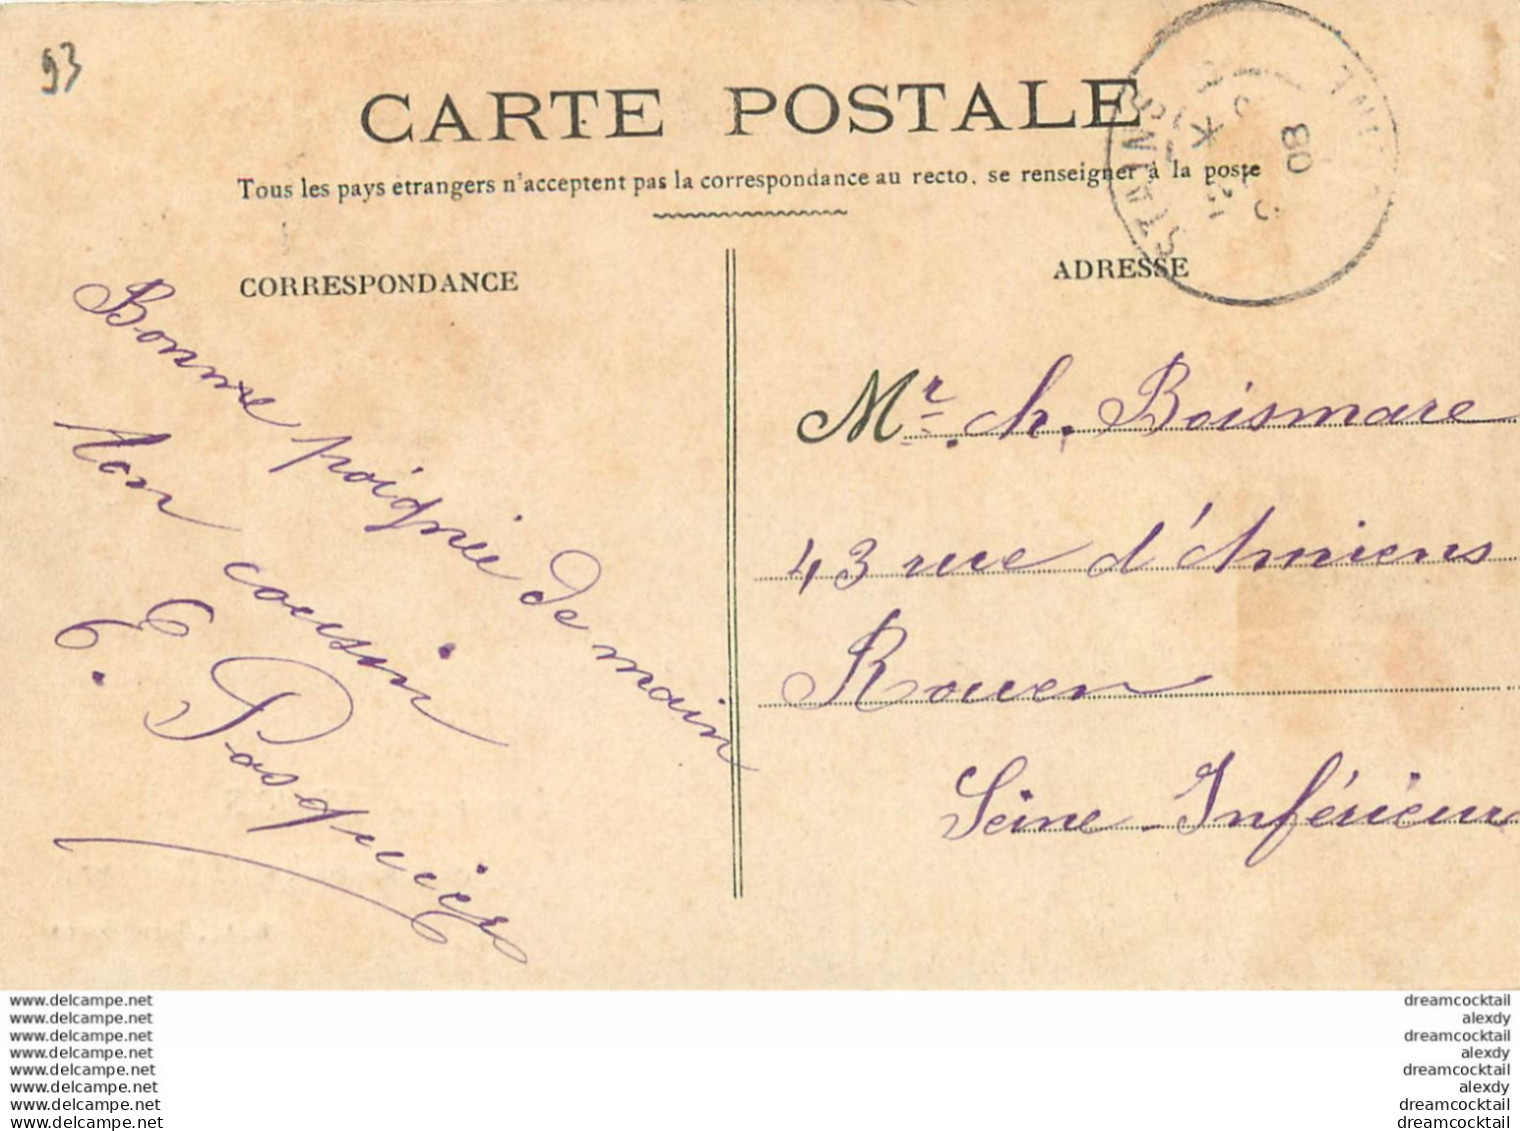 93
CARTE POSTALE
Tous les pays étrangers n'acceptent pas la correspondance au recto, se renseigner à la poste
CORRESPONDANCE
Bonne poignée de main
Ton cousin
E. Pasquier
ADRESSE
Mr. Ch. Boismare
43 rue d'Amiens
Rouen
Seine-Inférieure
08
www.delcampe.net
www.delcampe.net
www.delcampe.net
www.delcampe.net
www.delcampe.net
www.delcampe.net
www.delcampe.net
www.delcampe.net
dreamcocktail
alexdy
dreamcocktail
alexdy
dreamcocktail
alexdy
dreamcocktail
dreamcocktail